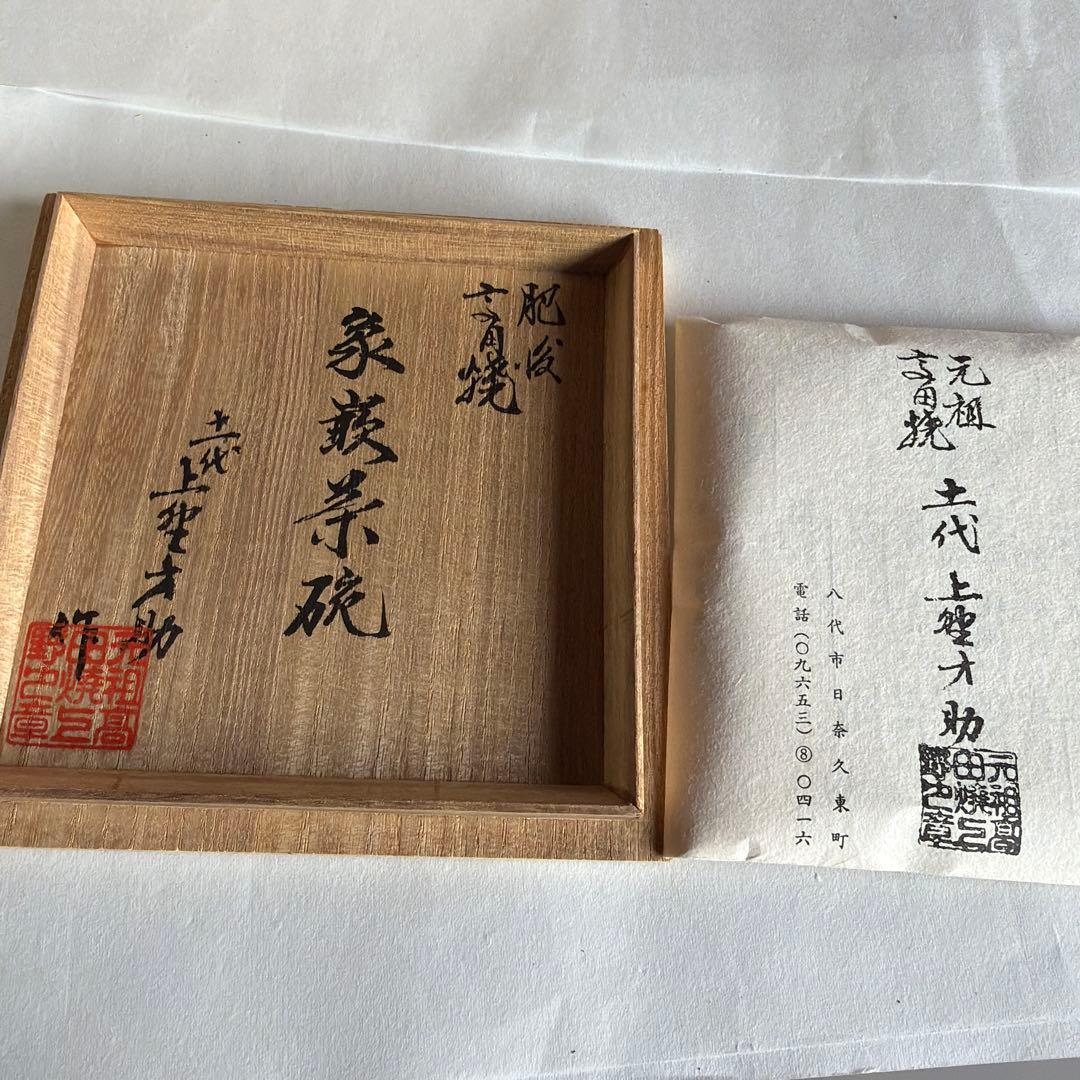 肥後
高田焼
象嵌茶碗
十一代
上野才助
作
元祖高
田焼上
野之章
元祖
高田焼
十一代 上野才助
八代市日奈久東町
電話(〇九六五三)⑧〇四一六
元祖高
田焼上
野之章